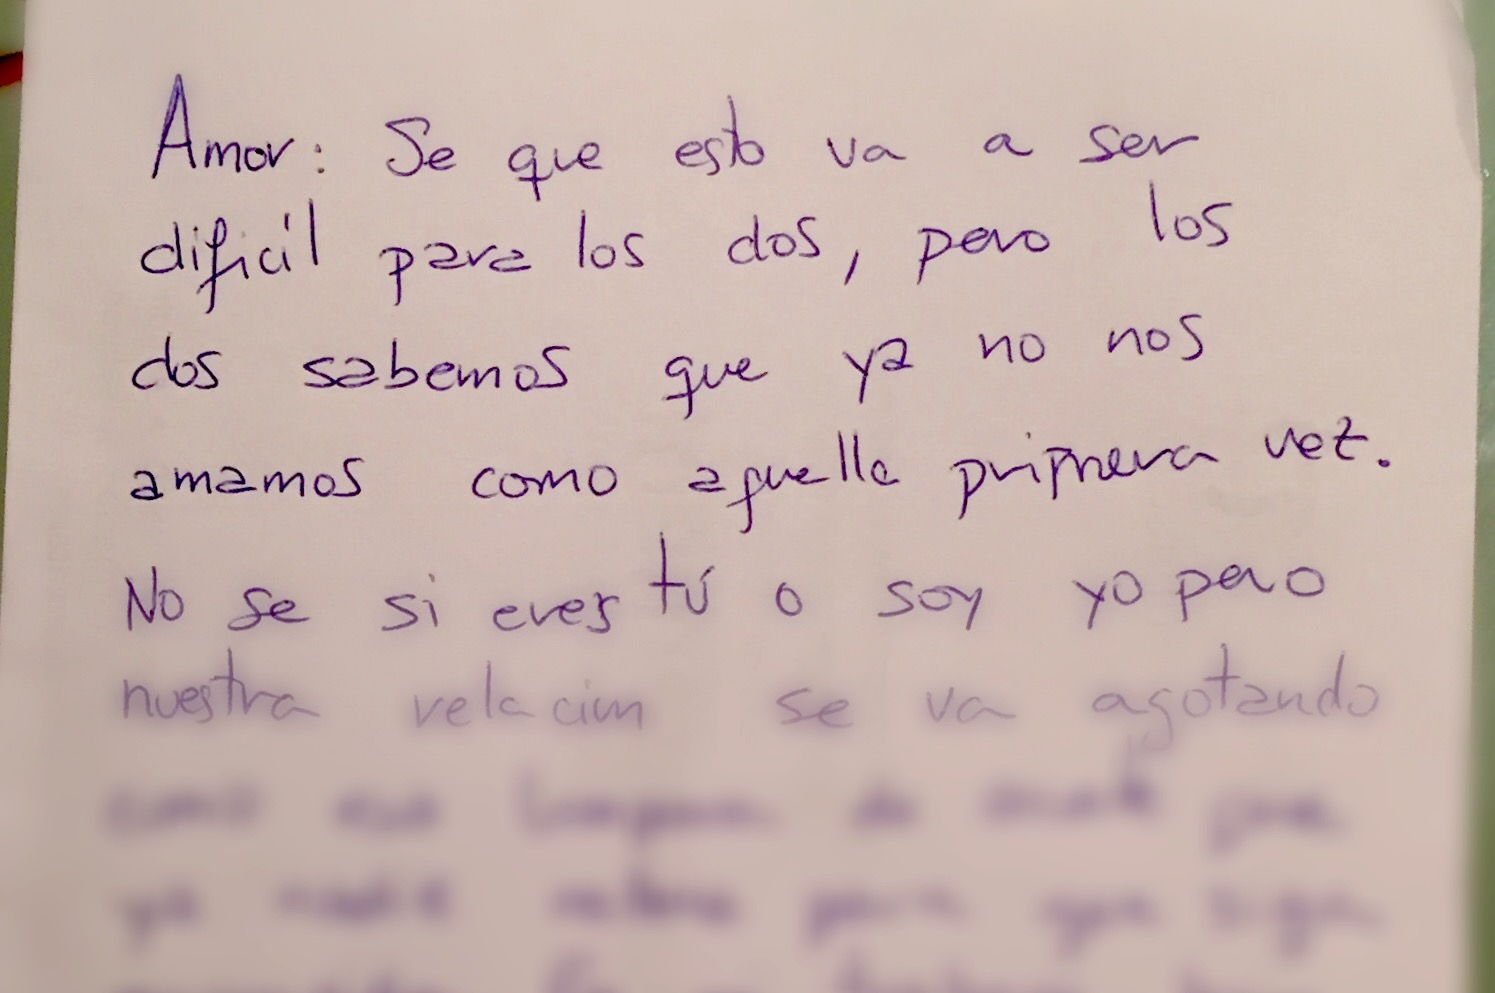 Amor: Se que esto va a ser
difícil para los dos, pero los
dos sabemos que ya no nos
amamos como aquella primera vez.
No se si eres tú o soy yo pero
nuestra relacion se va agotando
como esa de que
ya nadie para que siga